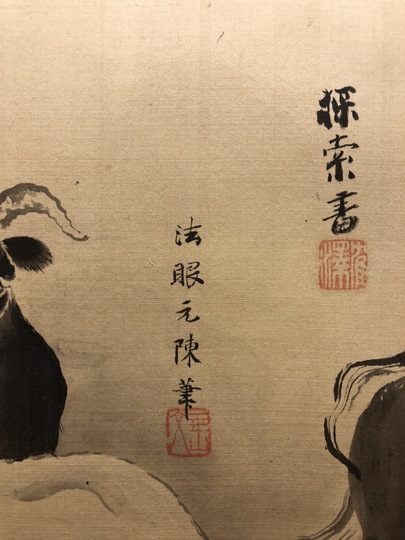 探索書
法眼元陳筆